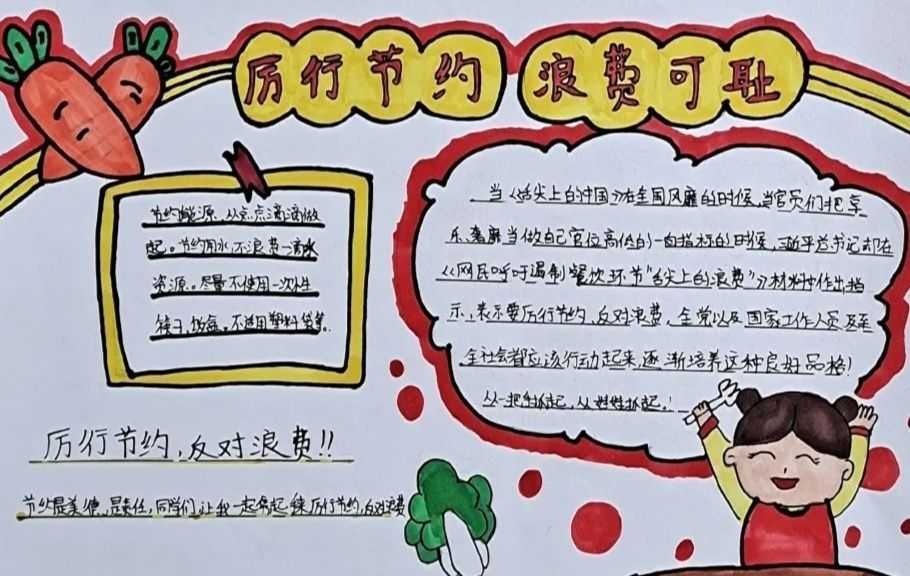 厉行节约 浪费可耻
节约能源、从点点滴滴做
起。节约用水、不浪费一滴水
资源。尽量不使用一次性
筷子、饭盒。不适用塑料袋等。
当《舌尖上的中国》在全国风靡的时候,当官员们把享
乐、奢靡当做自己官位高低的一向指标的时候,习近平总书记却在
《网民呼吁遏制餐饮环节“舌尖上的浪费”》材料中作出指
示,表示要厉行节约,反对浪费,全党以及国家工作人员及至
全社会都应该行动起来,逐渐培养这种良好品格!
从一把手抓起,从娃娃抓起!
厉行节约,反对浪费!!
节约是美德,是责任,同学们,让我一起来厉行节约,反对浪费